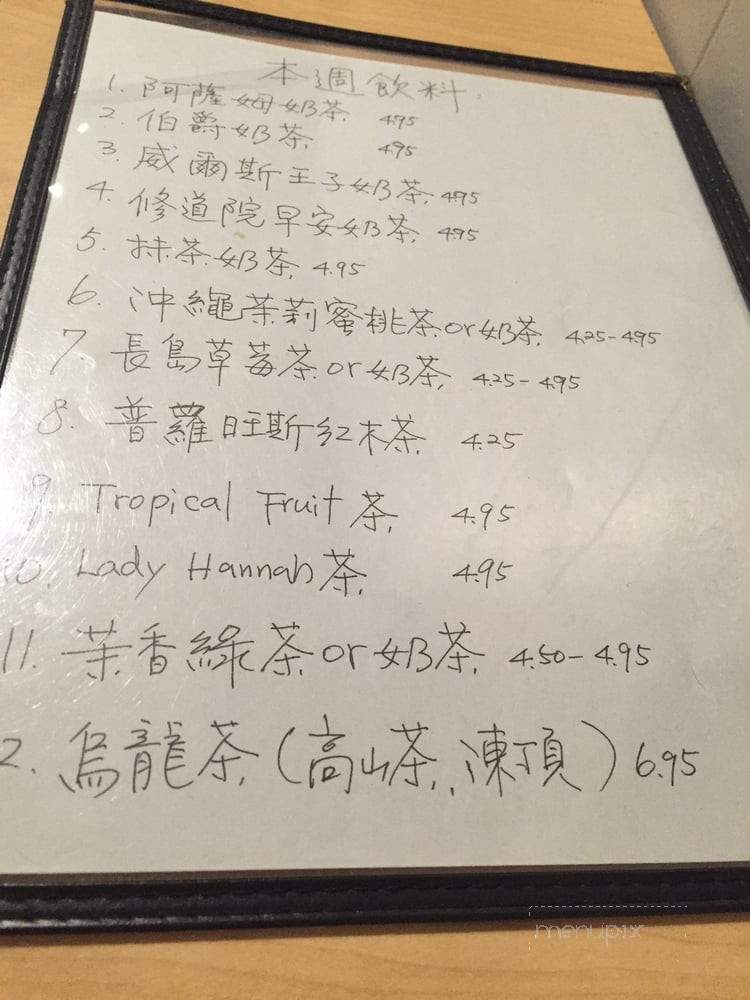 本週飲料:
1. 阿薩姆奶茶 4.95
2. 伯爵奶茶 4.95
3. 威爾斯王子奶茶 4.95
4. 修道院早安奶茶 4.95
5. 抹茶奶茶 4.95
6. 沖繩茉莉蜜桃茶or奶茶 4.25-4.95
7. 長島草莓茶or奶茶 4.25-4.95
8. 普羅旺斯紅木茶 4.25
9. Tropical Fruit 茶 4.95
10. Lady Hannah 茶 4.95
11. 茉香綠茶or奶茶 4.50-4.95
2. 烏龍茶(高山茶、凍頂) 6.95
menupix